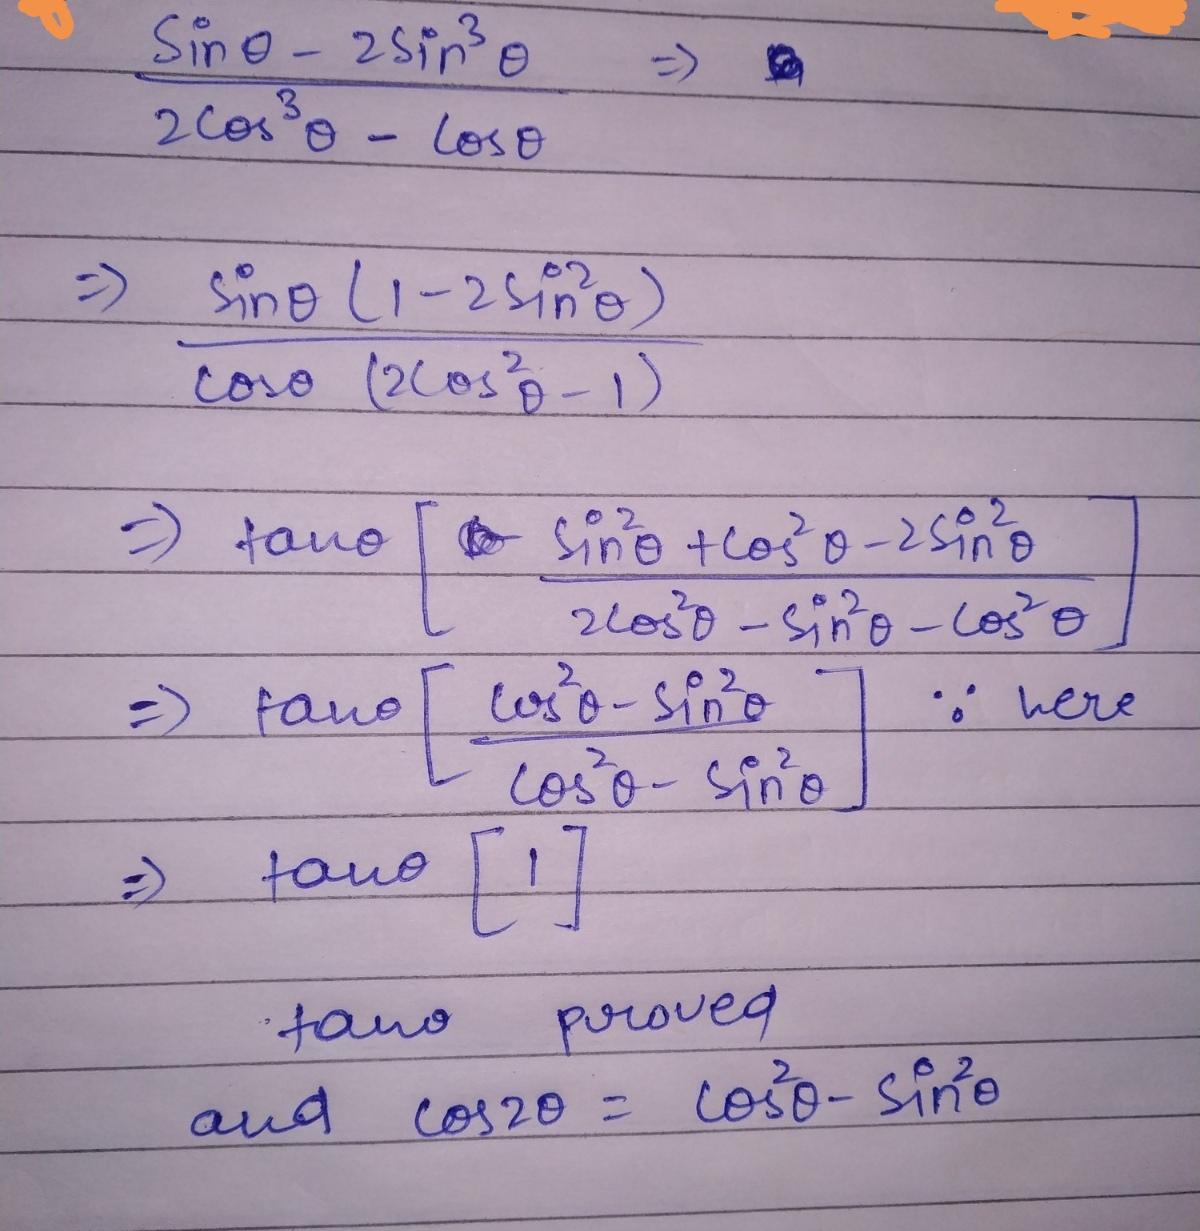 Sinθ - 2Sin³θ =>
2Cos³θ - Cosθ
=> Sinθ (1-2Sin²θ)
Cosθ (2Cos²θ-1)
=> tanθ [ Sin²θ +Cos²θ-2Sin²θ
2Cos²θ - Sin²θ - Cos²θ ]
=> tanθ [ Cos²θ - Sin²θ ∵ here
Cos²θ - Sin²θ ]
=> tanθ [1]
tanθ proved
and cos2θ = Cos²θ - Sin²θ